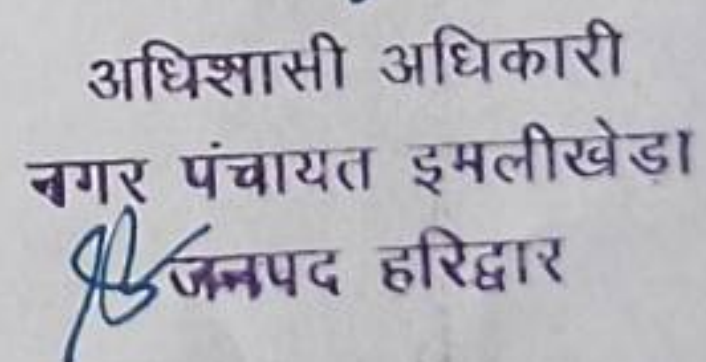 अधिशासी अधिकारी
नगर पंचायत इमलीखेडा
जनपद हरिद्वार